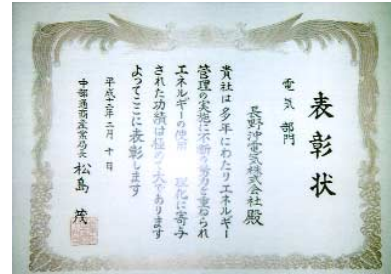 表彰状
電気部門
長野沖電気株式会社殿
貴社は多年にわたりエネルギー
管理の実施に不断の努力を重ねられ
エネルギーの使用 理化に寄与
された功績は極めて大であります
よってここに表彰します
平成十二年二月十日
中部通商産業局長 松島 茂